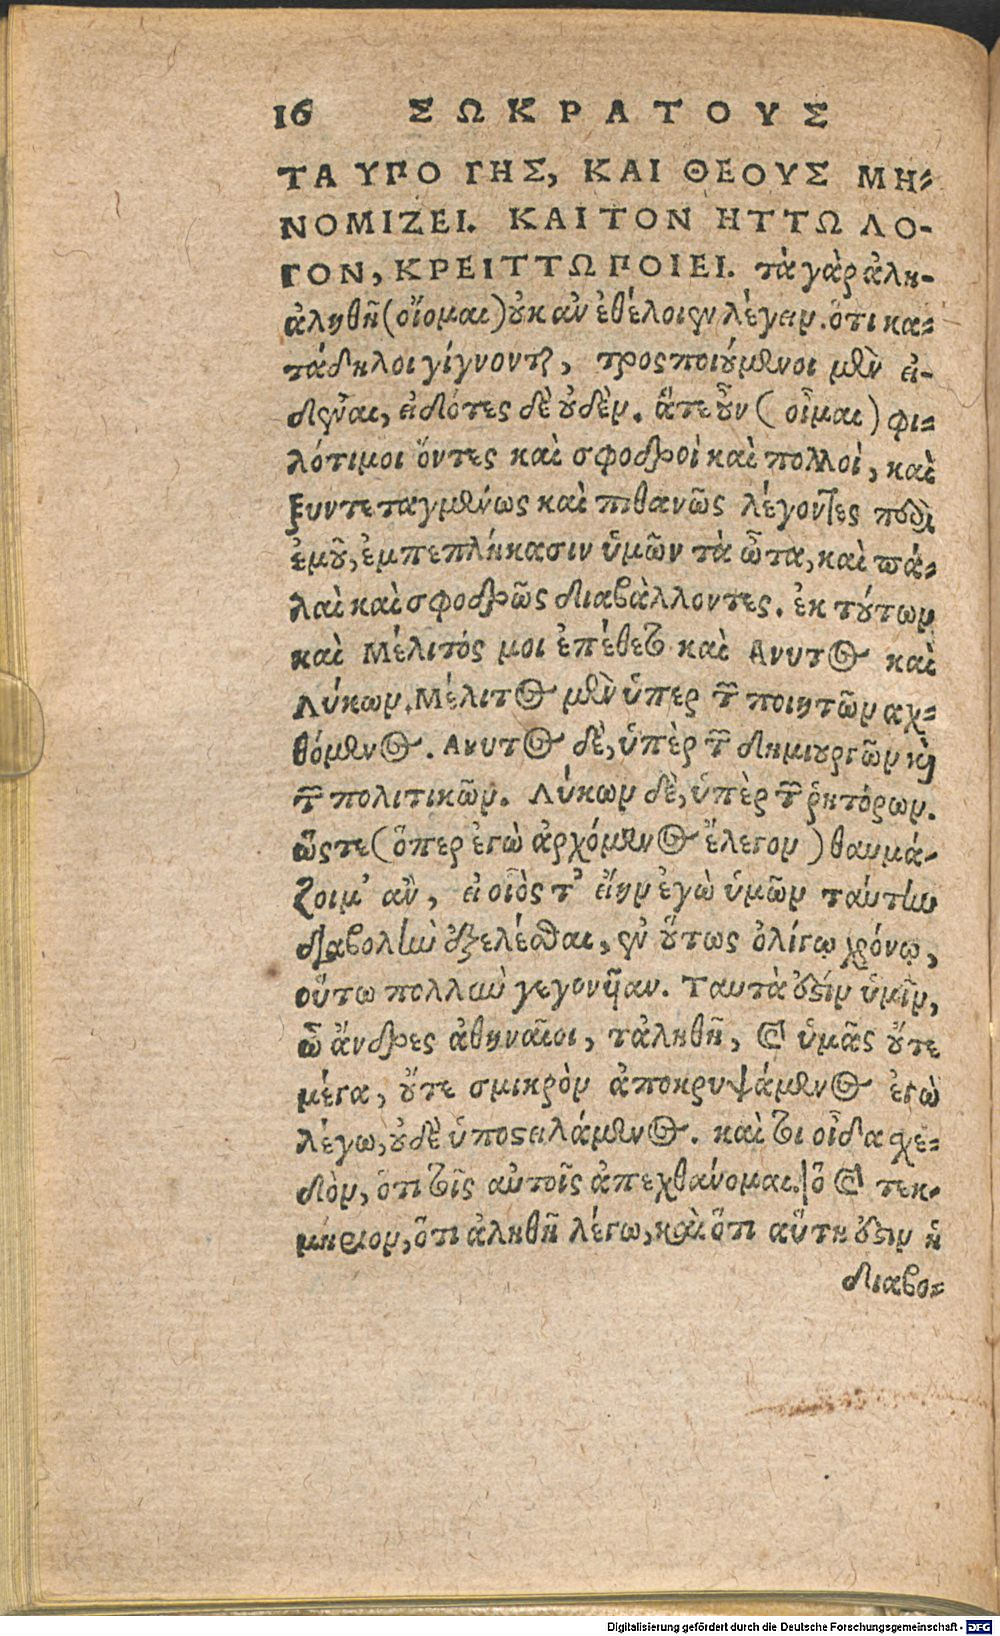 16 ΣΩΚΡΑΤΟΥΣ
ΤΑ ΥΠΟ ΓΗΣ, ΚΑΙ ΘΕΟΥΣ ΜΗ-
ΝΟΜΙΖΕΙ. ΚΑΙ ΤΟΝ ΗΤΤΩ ΛΟ-
ΓΟΝ, ΚΡΕΙΤΤΩ ΠΟΙΕΙ. τὰ γὰρ ἀλη-
ἀληθῆ (οἴομαι) οὐκ ἀν ἐθέλοιεν λέγειν. ὅτι κα-
τάδηλοι γίγνονται, τροςποιούμενοι μὲν εἰ-
δέναι, εἰδότες δὲ οὐδὲν. ἅτε οὖν (οἶμαι) φι-
λότιμοι ὄντες καὶ σφοδροὶ καὶ πολλοὶ, καὶ
ξυντεταγμένως καὶ πιθανῶς λέγοντες περὶ
ἐμοῦ, ἐμπεπλήκασιν ὑμῶν τὰ ὦτα, καὶ πά-
λαι καὶ σφοδρῶς διαβὰλλοντες. ἐκ τούτων
καὶ Μέλιτός μοι ἐπέθετο καὶ Ανυτος καὶ
Λύκων. Μέλιτος μὲν ὑπερ τῶν ποιητῶν αχ-
θόμενος. Ανυτος δὲ, ὑπὲρ τῶν δημιουργῶν καὶ
τῶν πολιτικῶν. Λύκων δὲ, ὑπὲρ τῶν ῥητόρων.
ὥςτε (ὅπερ ἐγὼ ἀρχόμενος ἔλεγον) θαυμά-
ζοιμ' αν, εἰ οἷός τ' εἴην ἐγὼ ὑμῶν ταύτην
διαβολὴν ἐξελέσθαι, ἐν οὕτως ὀλίγῳ χρόνῳ,
οὕτω πολλὴν γεγονῆαν. Ταυτὰ ἐστίν ὑμῖν,
ὦ ἄνδρες ἀθηναῖοι, τἀληθῆ, καὶ ὑμᾶς οὔτε
μέγα, οὔτε σμικρὸν ἀποκρυψάμενος ἐγὼ
λέγω, οὐδὲ ὑποστειλάμενος. καὶ τοι οἶδα σχε-
δὸν, ὅτι τοῖς αὐτοῖς ἀπεχθάνομαι. ὃ καὶ τεκ-
μήριον, ὅτι ἀληθῆ λέγω, καὶ ὅτι αὕτη ἐστιν ἡ
διαβο-
Digitalisierung gefördert durch die Deutsche Forschungsgemeinschaft - DFG